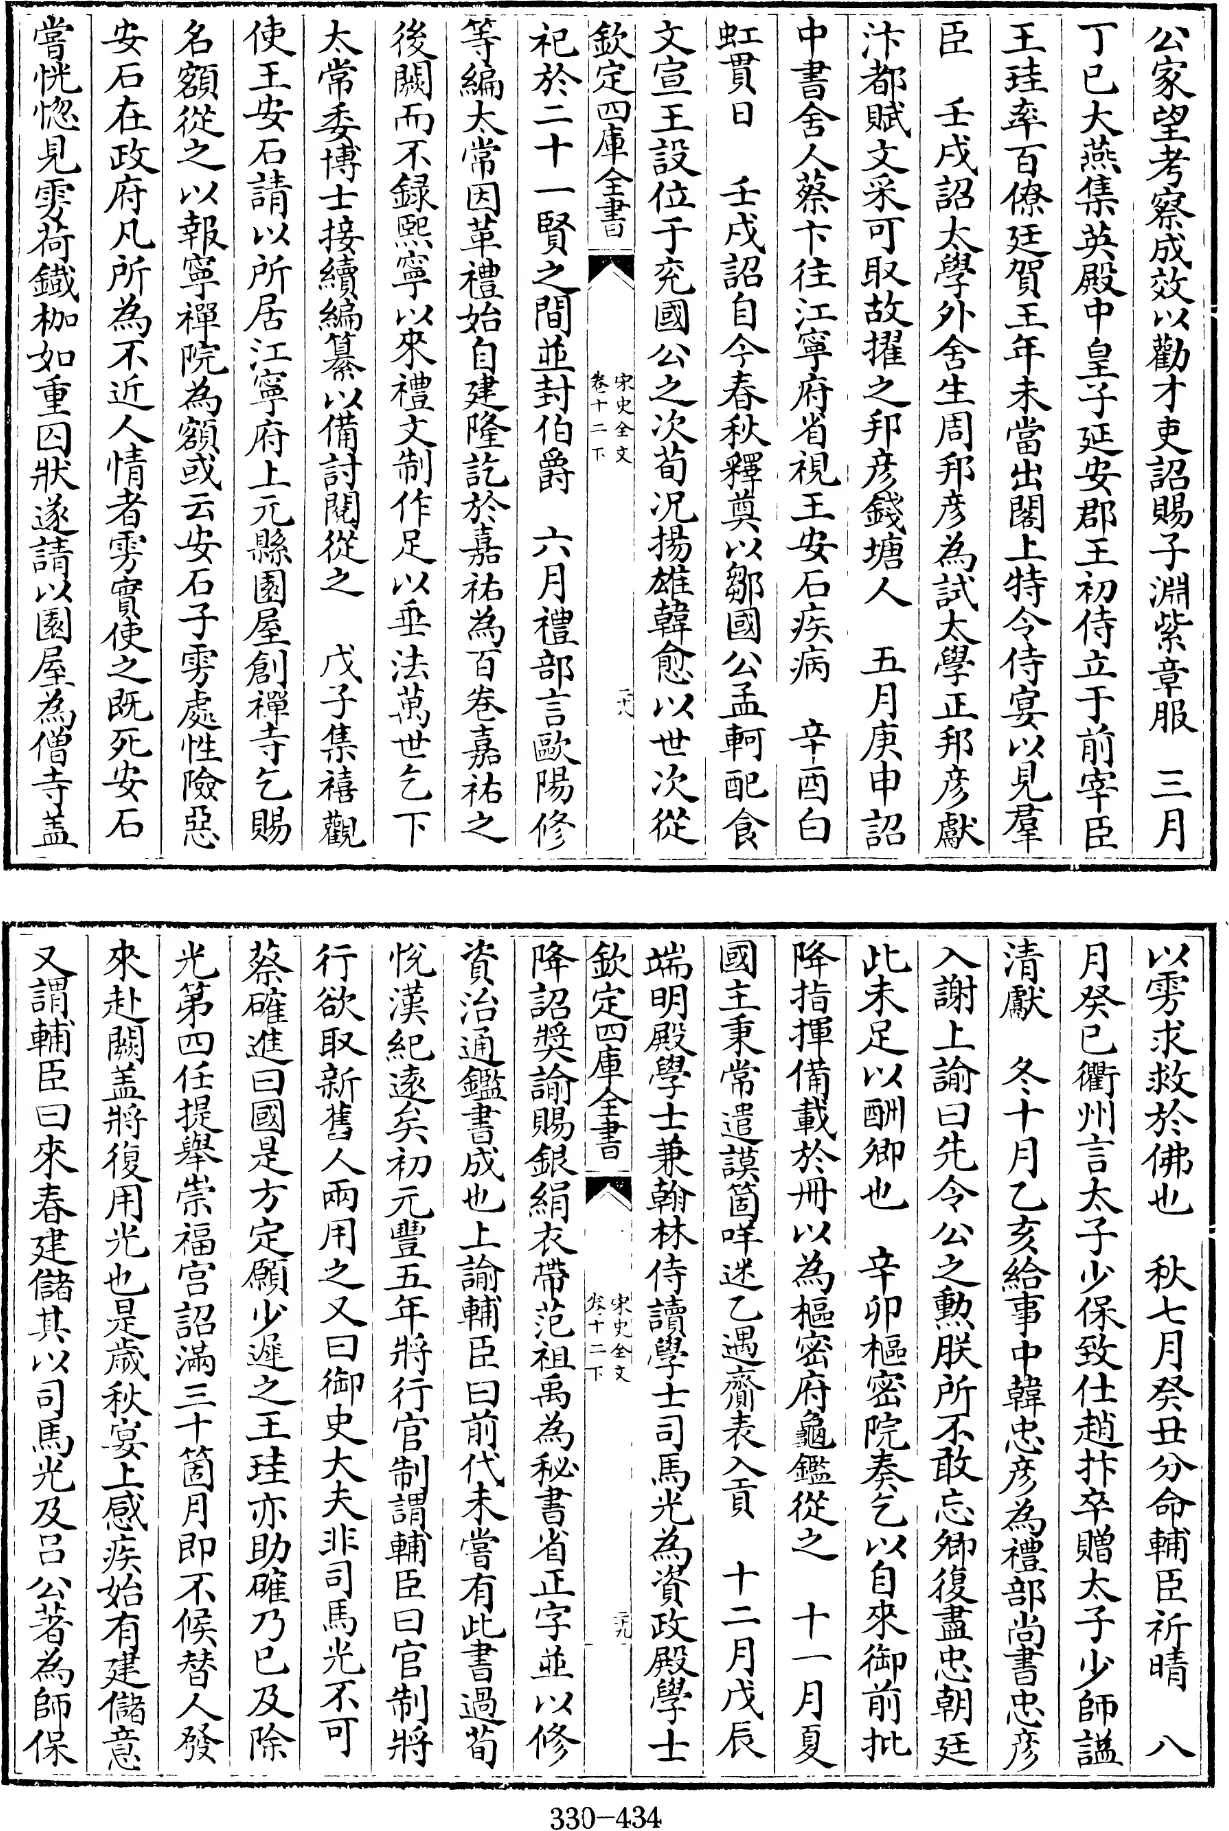 公家望考察成效以勸才吏詔賜子淵紫章服　三月
丁巳大燕集英殿中皇子延安郡王初侍立于前宰臣
王珪率百僚廷賀王年未當出閣上特令侍宴以見羣
臣　壬戌詔太學外舍生周邦彦為試太學正邦彦獻
汴都賦文采可取故擢之邦彦錢塘人　五月庚申詔
中書舍人蔡卞往江寧府省視王安石疾病　辛酉白
虹貫日　壬戌詔自今春秋釋奠以鄒國公孟軻配食
文宣王設位于兖國公之次荀況揚雄韓愈以世次從
欽定四庫全書
宋史全文
卷十二下
二十八
祀於二十一賢之間並封伯爵　六月禮部言歐陽修
等編太常因革禮始自建隆訖於嘉祐為百卷嘉祐之
後闕而不録熙寧以來禮文制作足以垂法萬世乞下
太常委博士接續編纂以備討閲從之　戊子集禧觀
使王安石請以所居江寧府上元縣園屋創禪寺乞賜
名額從之以報寧禪院為額或云安石子雱處性險惡
安石在政府凡所為不近人情者雱實使之既死安石
嘗恍惚見雱荷鐵枷如重囚狀遂請以園屋為僧寺盖
以雱求救於佛也　秋七月癸丑分命輔臣祈晴　八
月癸巳衢州言太子少保致仕趙抃卒贈太子少師諡
清獻　冬十月乙亥給事中韓忠彦為禮部尚書忠彦
入謝上諭曰先令公之勲朕所不敢忘卿復盡忠朝廷
此未足以酬卿也　辛卯樞密院奏乞以自來御前批
降指揮備載於冊以為樞密府龜鑑從之　十一月夏
國主秉常遣謨箇咩迷乙遇齎表入貢　十二月戊辰
端明殿學士兼翰林侍讀學士司馬光為資政殿學士
欽定四庫全書
宋史全文
卷十二下
二十九
降詔奬諭賜銀絹衣帶范祖禹為秘書省正字並以修
資治通鑑書成也上諭輔臣曰前代未嘗有此書過荀
悦漢紀遠矣初元豐五年將行官制謂輔臣曰官制將
行欲取新舊人兩用之又曰御史大夫非司馬光不可
蔡確進曰國是方定願少遲之王珪亦助確乃已及除
光第四任提舉崇福宫詔滿三十箇月即不候替人發
來赴闕盖將復用光也是歲秋宴上感疾始有建儲意
又謂輔臣曰來春建儲其以司馬光及吕公著為師保
330-434